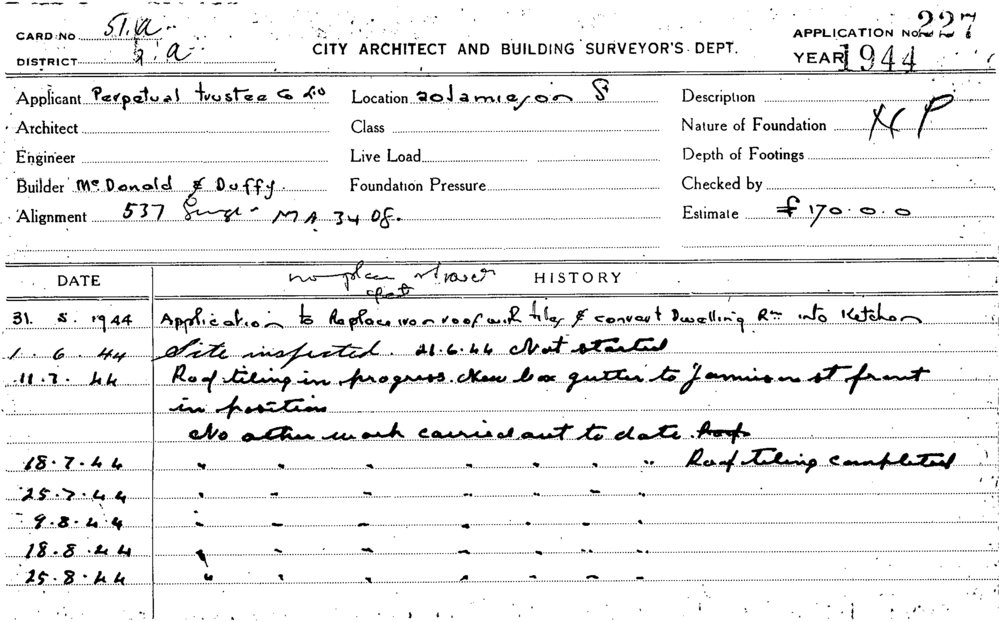 CARD No 51.a
DISTRICT 2.a
CITY ARCHITECT AND BUILDING SURVEYOR'S DEPT.
APPLICATION No. 227
YEAR 1944
Applicant Perpetual trustee Co Ltd
Location 20 Jamieson St
Description
Architect
Class
Nature of Foundation
Engineer
Live Load
Depth of Footings
Builder McDonald & Duffy
Foundation Pressure
Checked by
Alignment 537 MA 34 08.
Estimate £ 170.0.0
no plan
DATE HISTORY
31. 5. 1944 Application to Replace iron roof with tiles & convert Dwelling Rm into Ketchon
1. 6. 44 Site inspected. 21.6.44 Not started
11.7.44 Roof tiling in progress. New box gutter to Jamieson st front
in position
No other work carried out to date Roof
18.7.44 " " " " " " " Roof tiling completed
25.7.44 " " " " " " "
9.8.44 " " " " " " "
18.8.44 " " " " " " "
25.8.44 " " " " " " "